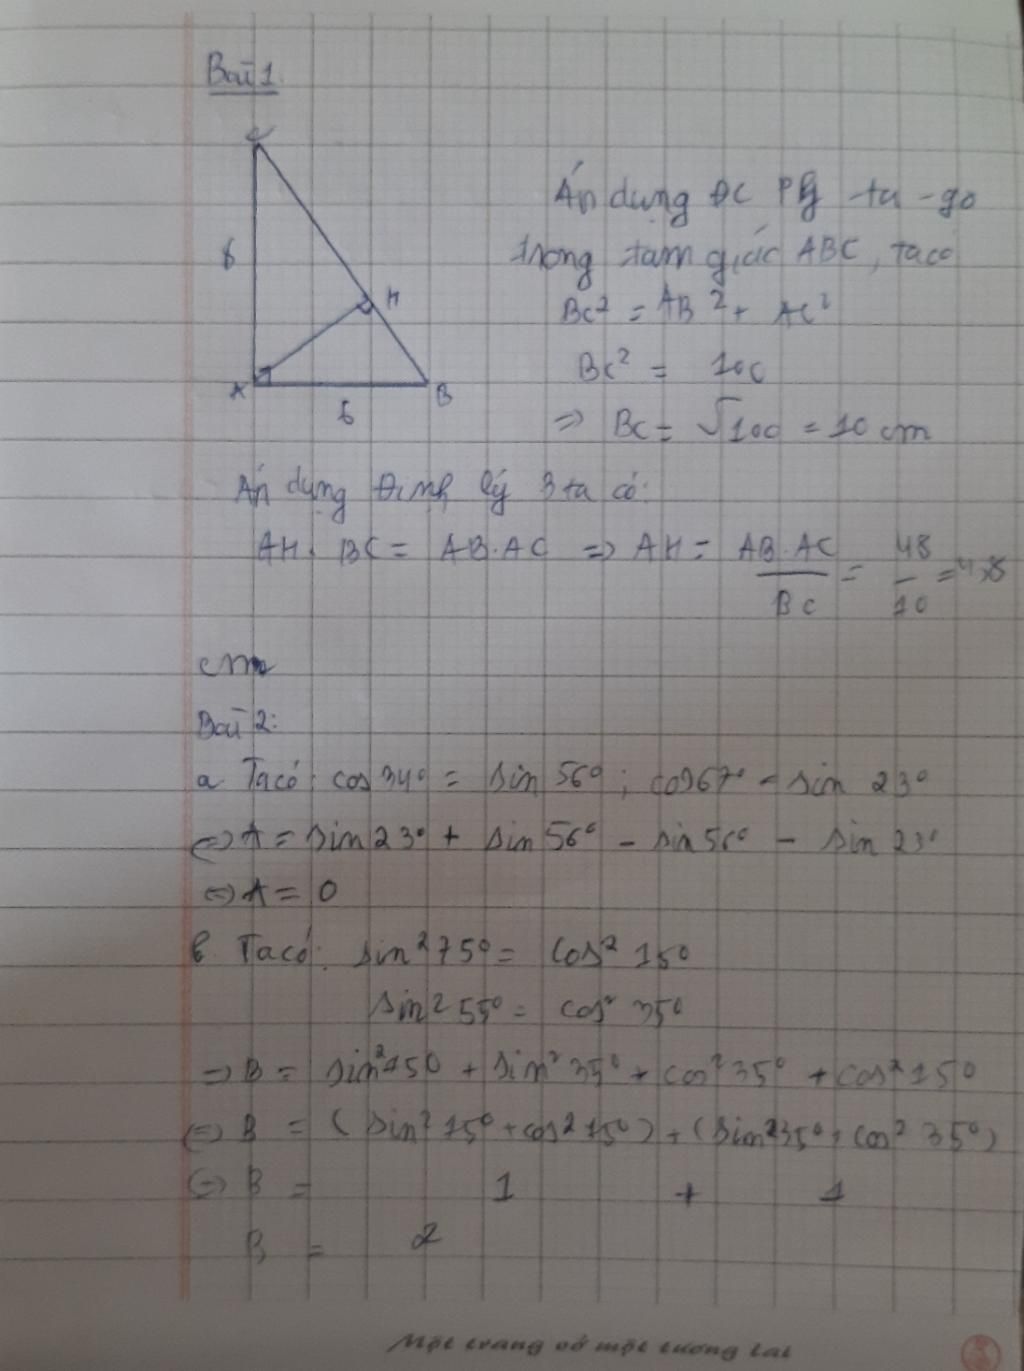 Bài 1.
C
8
H
A
B
6
Áp dụng ĐL Py ta-go
trong tam giác ABC, ta có
BC² = AB² + AC²
BC² = 100
=> BC = √100 = 10 cm
Áp dụng Định lý 3 ta có:
AH. BC = AB.AC => AH = AB.AC / BC = 48 / 10 = 4,8
cm
Bài 2:
a Ta có: cos 34° = sin 56° ; cos 67° = sin 23°
<=> A = sin 23° + sin 56° - sin 56° - sin 23°
<=> A = 0
b. Ta có: sin² 75° = cos² 15°
sin² 55° = cos² 35°
=> B = sin² 15° + sin² 35° + cos² 35° + cos² 15°
<=> B = (sin² 15° + cos² 15°) + (sin² 35° + cos² 35°)
<=> B = 1 + 1
B = 2
Một trang vở một tương lai